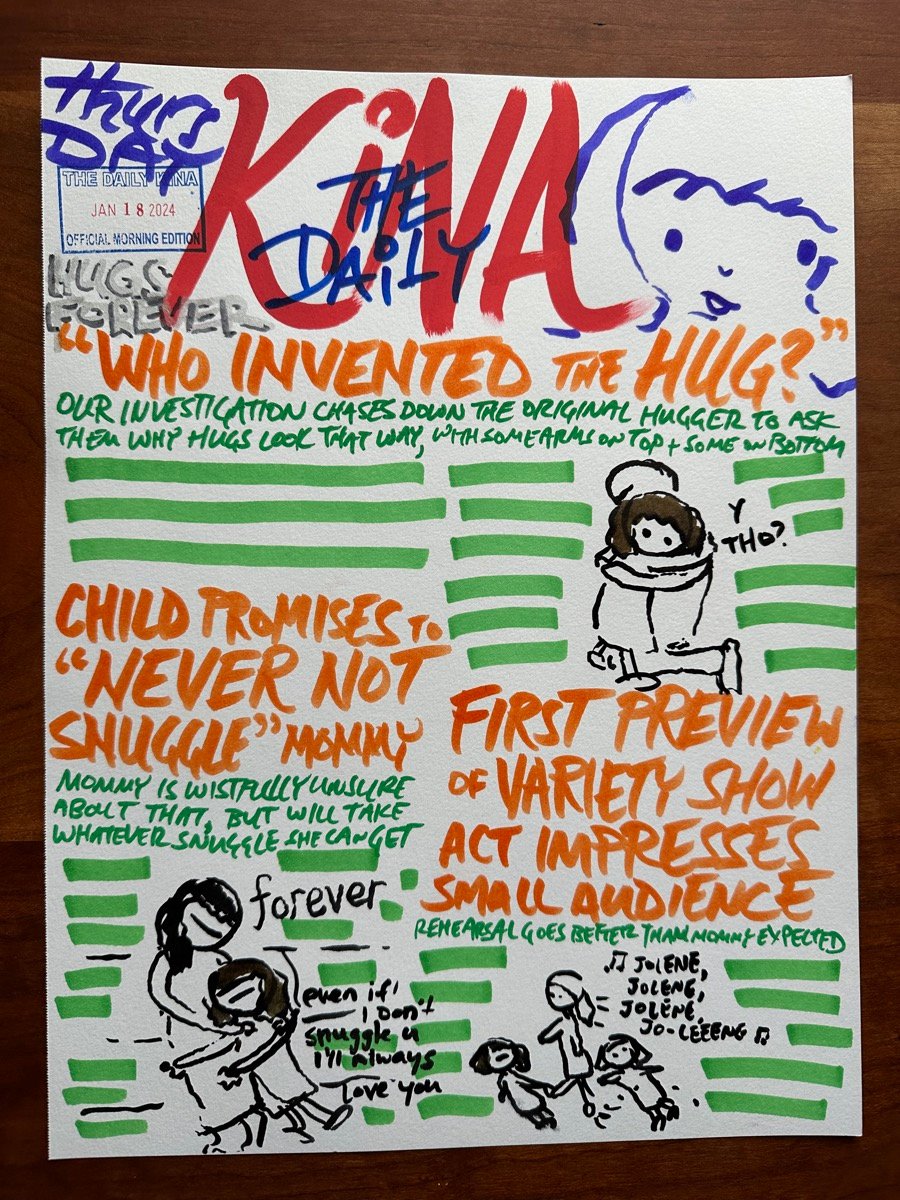 Thurs
DAY
KiNA
THE
DAiLY
THE DAILY KINA
JAN 18 2024
OFFICIAL MORNING EDITION
HUGS
FOREVER
"WHO INVENTED THE HUG?"
OUR INVESTIGATION CHASES DOWN THE ORIGINAL HUGGER TO ASK
THEM WHY HUGS LOOK THAT WAY, WITH SOME ARMS ON TOP + SOME ON BOTTOM
Y
THO?
CHILD PROMISES TO
"NEVER NOT
SNUGGLE" MOMMY
MOMMY IS WISTFULLY UNSURE
ABOUT THAT, BUT WILL TAKE
WHATEVER SNUGGLE SHE CAN GET
forever
even if
I don't
snuggle u
I'll always
love you
FIRST PREVIEW
OF VARIETY SHOW
ACT IMPRESSES
SMALL AUDIENCE
REHEARSAL GOES BETTER THAN MOMMY EXPECTED
♫ JOLENE,
JOLENE,
JOLENE,
JO-LEEENE ♫